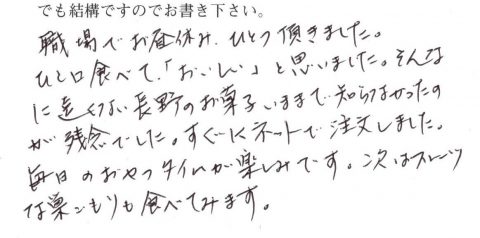 でも結構ですのでお書き下さい。
職場でお昼休み、ひとつ頂きました。
ひと口食べて、「おいしい」と思いました。そんな
に遠くない長野のお菓子いままで知らなかったの
が残念でした。すぐにネットで注文しました。
毎日のおやつタイムが楽しみです。次はスイーツ
な巣ごもりも食べてみます。